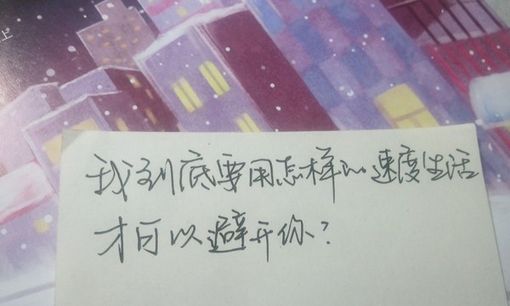 上
我到底要用怎样的速度生活
才可以避开你？